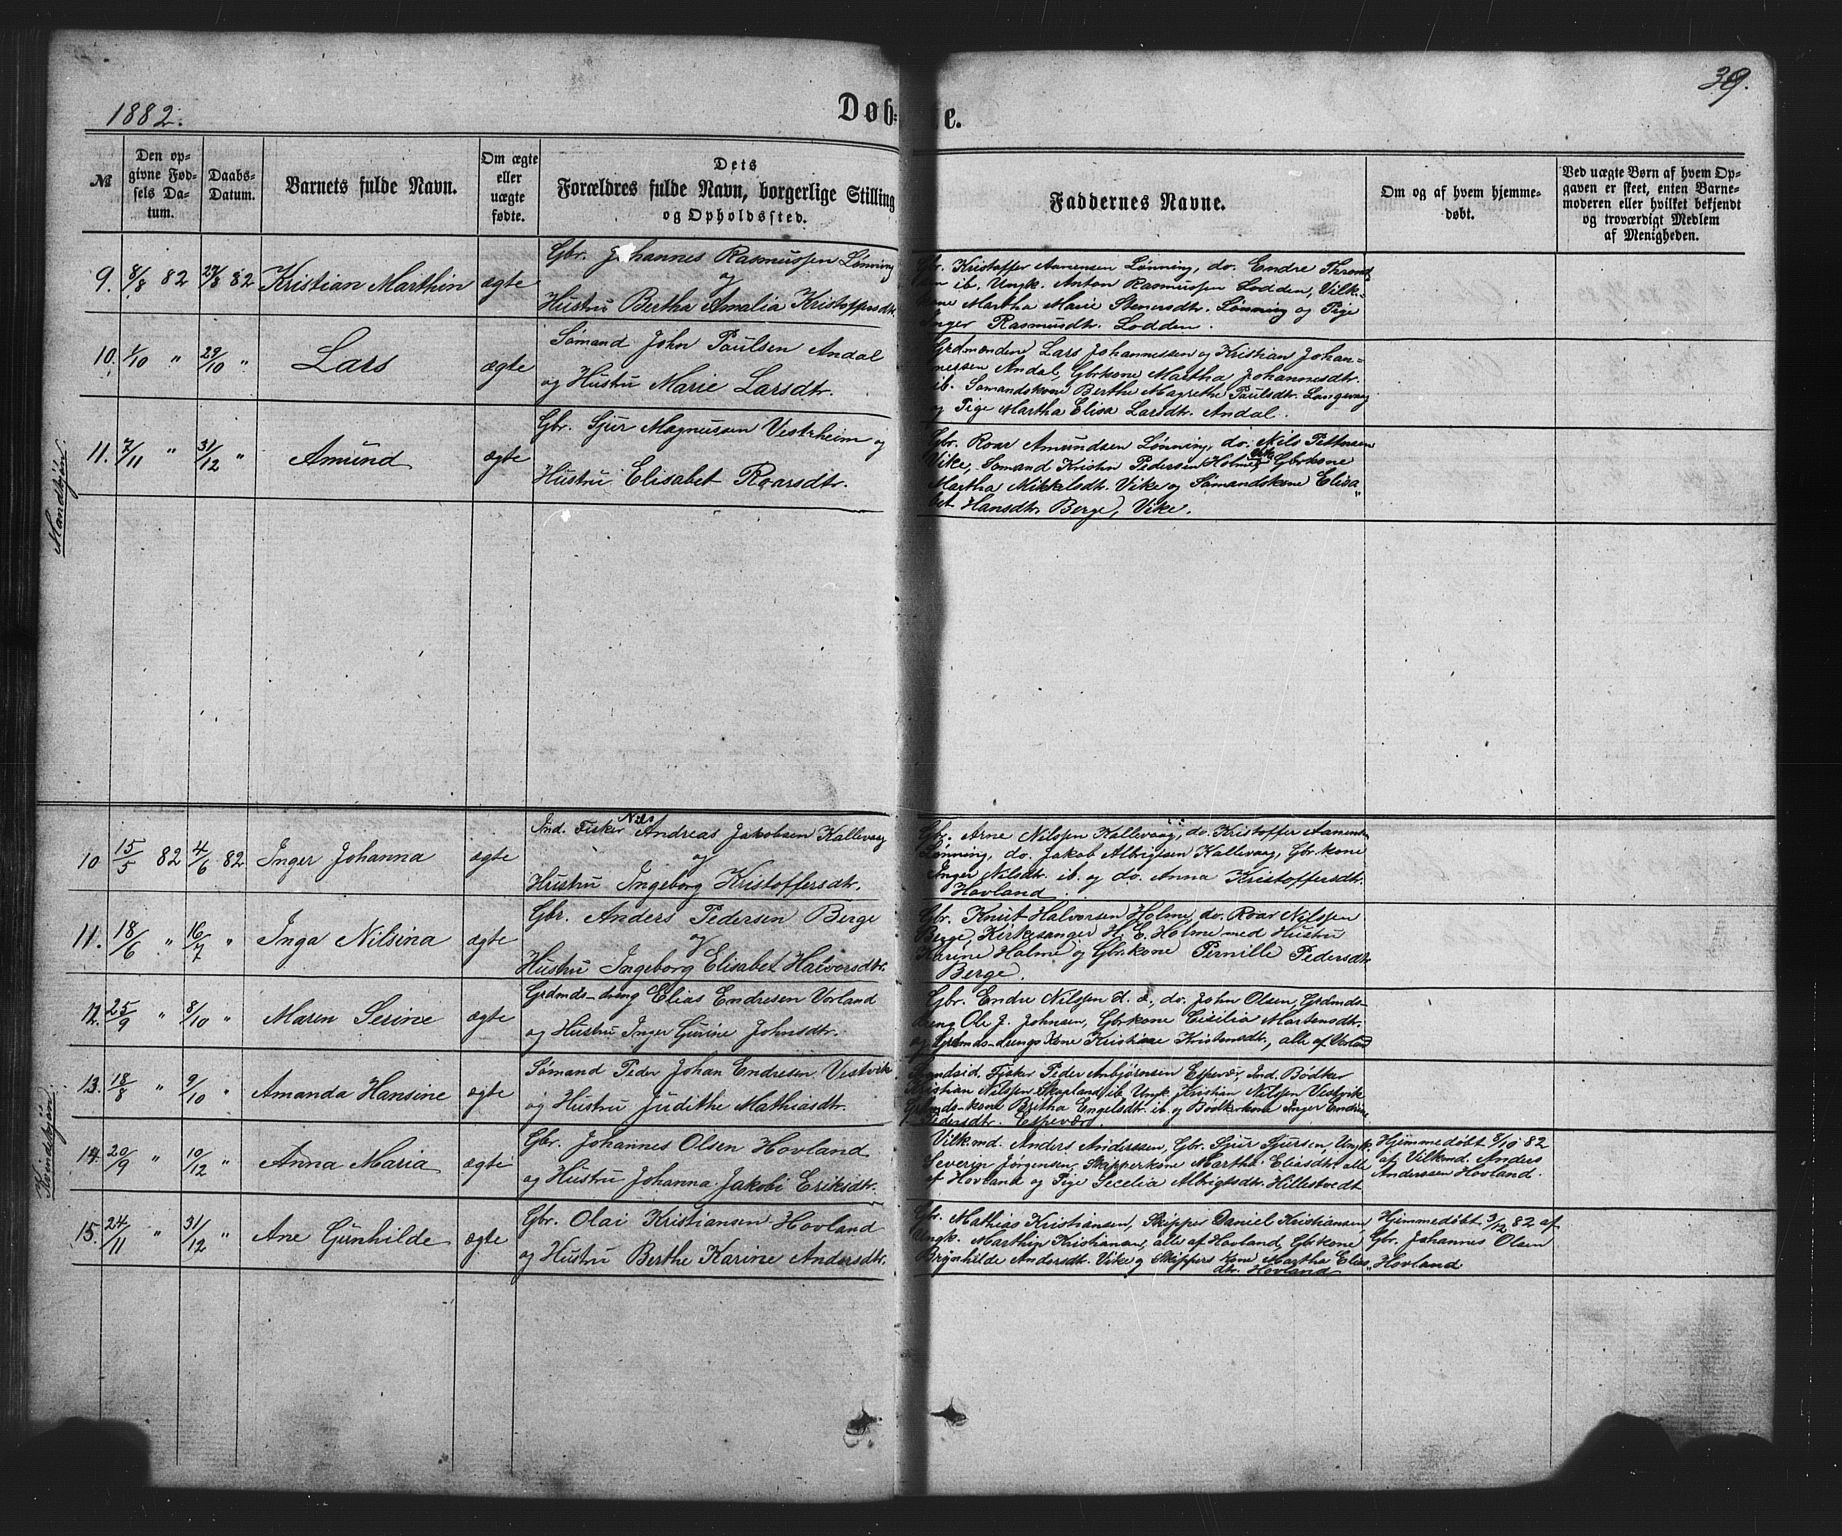 39.
1882.
Døb=
te.
№
Den op=
givne Fød=
sels Da=
tum.
Daabs=
Datum.
Barnets fulde Navn.
Om ægte
eller
uægte
fødte.
Dets
Forældres fulde Navn, borgerlige Stilling
og Opholdssted.
Faddernes Navne.
Om og af hvem hjemme=
døbt.
Ved uægte Børn af hvem Op=
gaven er skeet, enten Barne=
moderen eller hvilket bekjendt
og troværdigt Medlem
af Menigheden.
Mandkjön.
9. 8/8 82 27/8 82 Kristian Marthin ægte
Gbr. Johannes Rasmussen Lønning
og
Hustru Bertha Amalia Kristoffersdtr.
Gbr. Kristoffer Aamensen Lønning, do. Endre Thrond
sen ib., Ungk. Anton Rasmussen Lodden, Vilk.
kone Martha Marie Stenersdtr. Lønning og Pige
Inger Rasmusdtr. Lodden.
10. 1/10 " 29/10 " Lars ægte
Sømand John Paulsen Andal
og Hustru Marie Larsdtr.
Grdmændene Lars Johannessen og Kristian Johan=
nessen Andal, Gbrkone Martha Johannesdtr.
ib. Sømandskone Berthe Magrethe Paulsdtr. Langevaag
og Pige Martha Elisa Larsdtr. Andal.
11. 7/11 " 31/12 " Amund ægte
Gbr. Sjur Magnussen Vestrheim og
Hustru Elisabet Roarsdtr.
Gbr. Roar Amundsen Lønning, do. Nils Pettersen
Vike, Sømand Kristn Pedersen Holme, Gbrkone
Martha Mikkelsdtr. Vike og Sømandskone Elisa"
bet Hansdtr. Berge, Vike.
Kvindekjön.
10 15/5 82 4/6 82 Inger Johanna ægte
Ind. Fisker Nils Andreas Jakobsen Kallevaag
og
Hustru Ingeborg Kristoffersdtr.
Gbr. Arne Nilssen Kallevaag, do. Kristoffer Aamens.
Lønning, do. Jakob Albrigtsen Kallevaag, Gbrkone
Inger Nilsdtr. ib. og do. Anna Kristoffersdtr.
Hovland.
11. 18/6 " 16/7 " Inga Nilsina ægte
Gbr. Anders Pedersen Berge
og
Hustru Ingeborg Elisabet Halvorsdtr.
Gbr. Knut Halvorsen Holme, do. Roar Nilssen
Berge, Kirkesanger H. E. Holme med Hustru
Karine Holme og Gbrkone Pernille Pedersdtr.
Berge.
12. 25/9 " 8/10 " Maren Serine ægte
Grdmds=dreng Elias Endresen Vorland
og Hustru Inger Gurine Johnsdtr.
Gbr. Endre Nilssen d. æ., do. John Olsen, Grdmds=
dreng Ole J. Johnsen, Gbrkone Cisilia Martensdtr.
og Grdmds=drengs Kone Kristine Kristensdtr., alle af Vorland
13. 18/8 " 9/10 " Amanda Hansine ægte
Sømand Peder Johan Endresen Vestvik
og Hustru Judithe Mathiasdtr.
Strandsid. Fisker Peder Anbjørnsen Espevær, Ind. Bødker
Kristian Nilssen Skapland ib. Ungk. Kristian Nilssen Vestvik
Grdmds=kone Britha Engelsdtr. ib. og Bødkerkone Inger Endrine
Pedersdtr. Espevær.
14. 20/9 " 10/12 " Anna Maria ægte
Gbr. Johannes Olsen Hovland
og Hustru Johanna Jakobi Eriksdtr.
Vilkmd. Anders Anderssen, Gbr. Sjur Sjursen, Ungk.
Severin Jørgensen, Skipperkone Martha Eliasdtr. alle
af Hovland og Pige Secelia Albrigtsdtr. Hillestvedt
Hjemmedøbt 8/10 82
af Vilkmd. Anders
Anderssen Hovland.
15. 24/11 " 31/12 " Ane Gunhilde ægte
Gbr. Olai Kristiansen Hovland
og Hustru Berthe Karine Andersdtr.
Gbr. Mathias Kristiansen, Skipper Daniel Kristiansen
Ungk. Marthin Kristiansen, alle af Hovland, Gbrkone
Brynhilde Andersdtr. Vike og Skippers Kone Martha Elias"
dtr. Hovland
Hjemmedøbt 3/12 82 af
Gbr. Johannes Olsen
Hovland